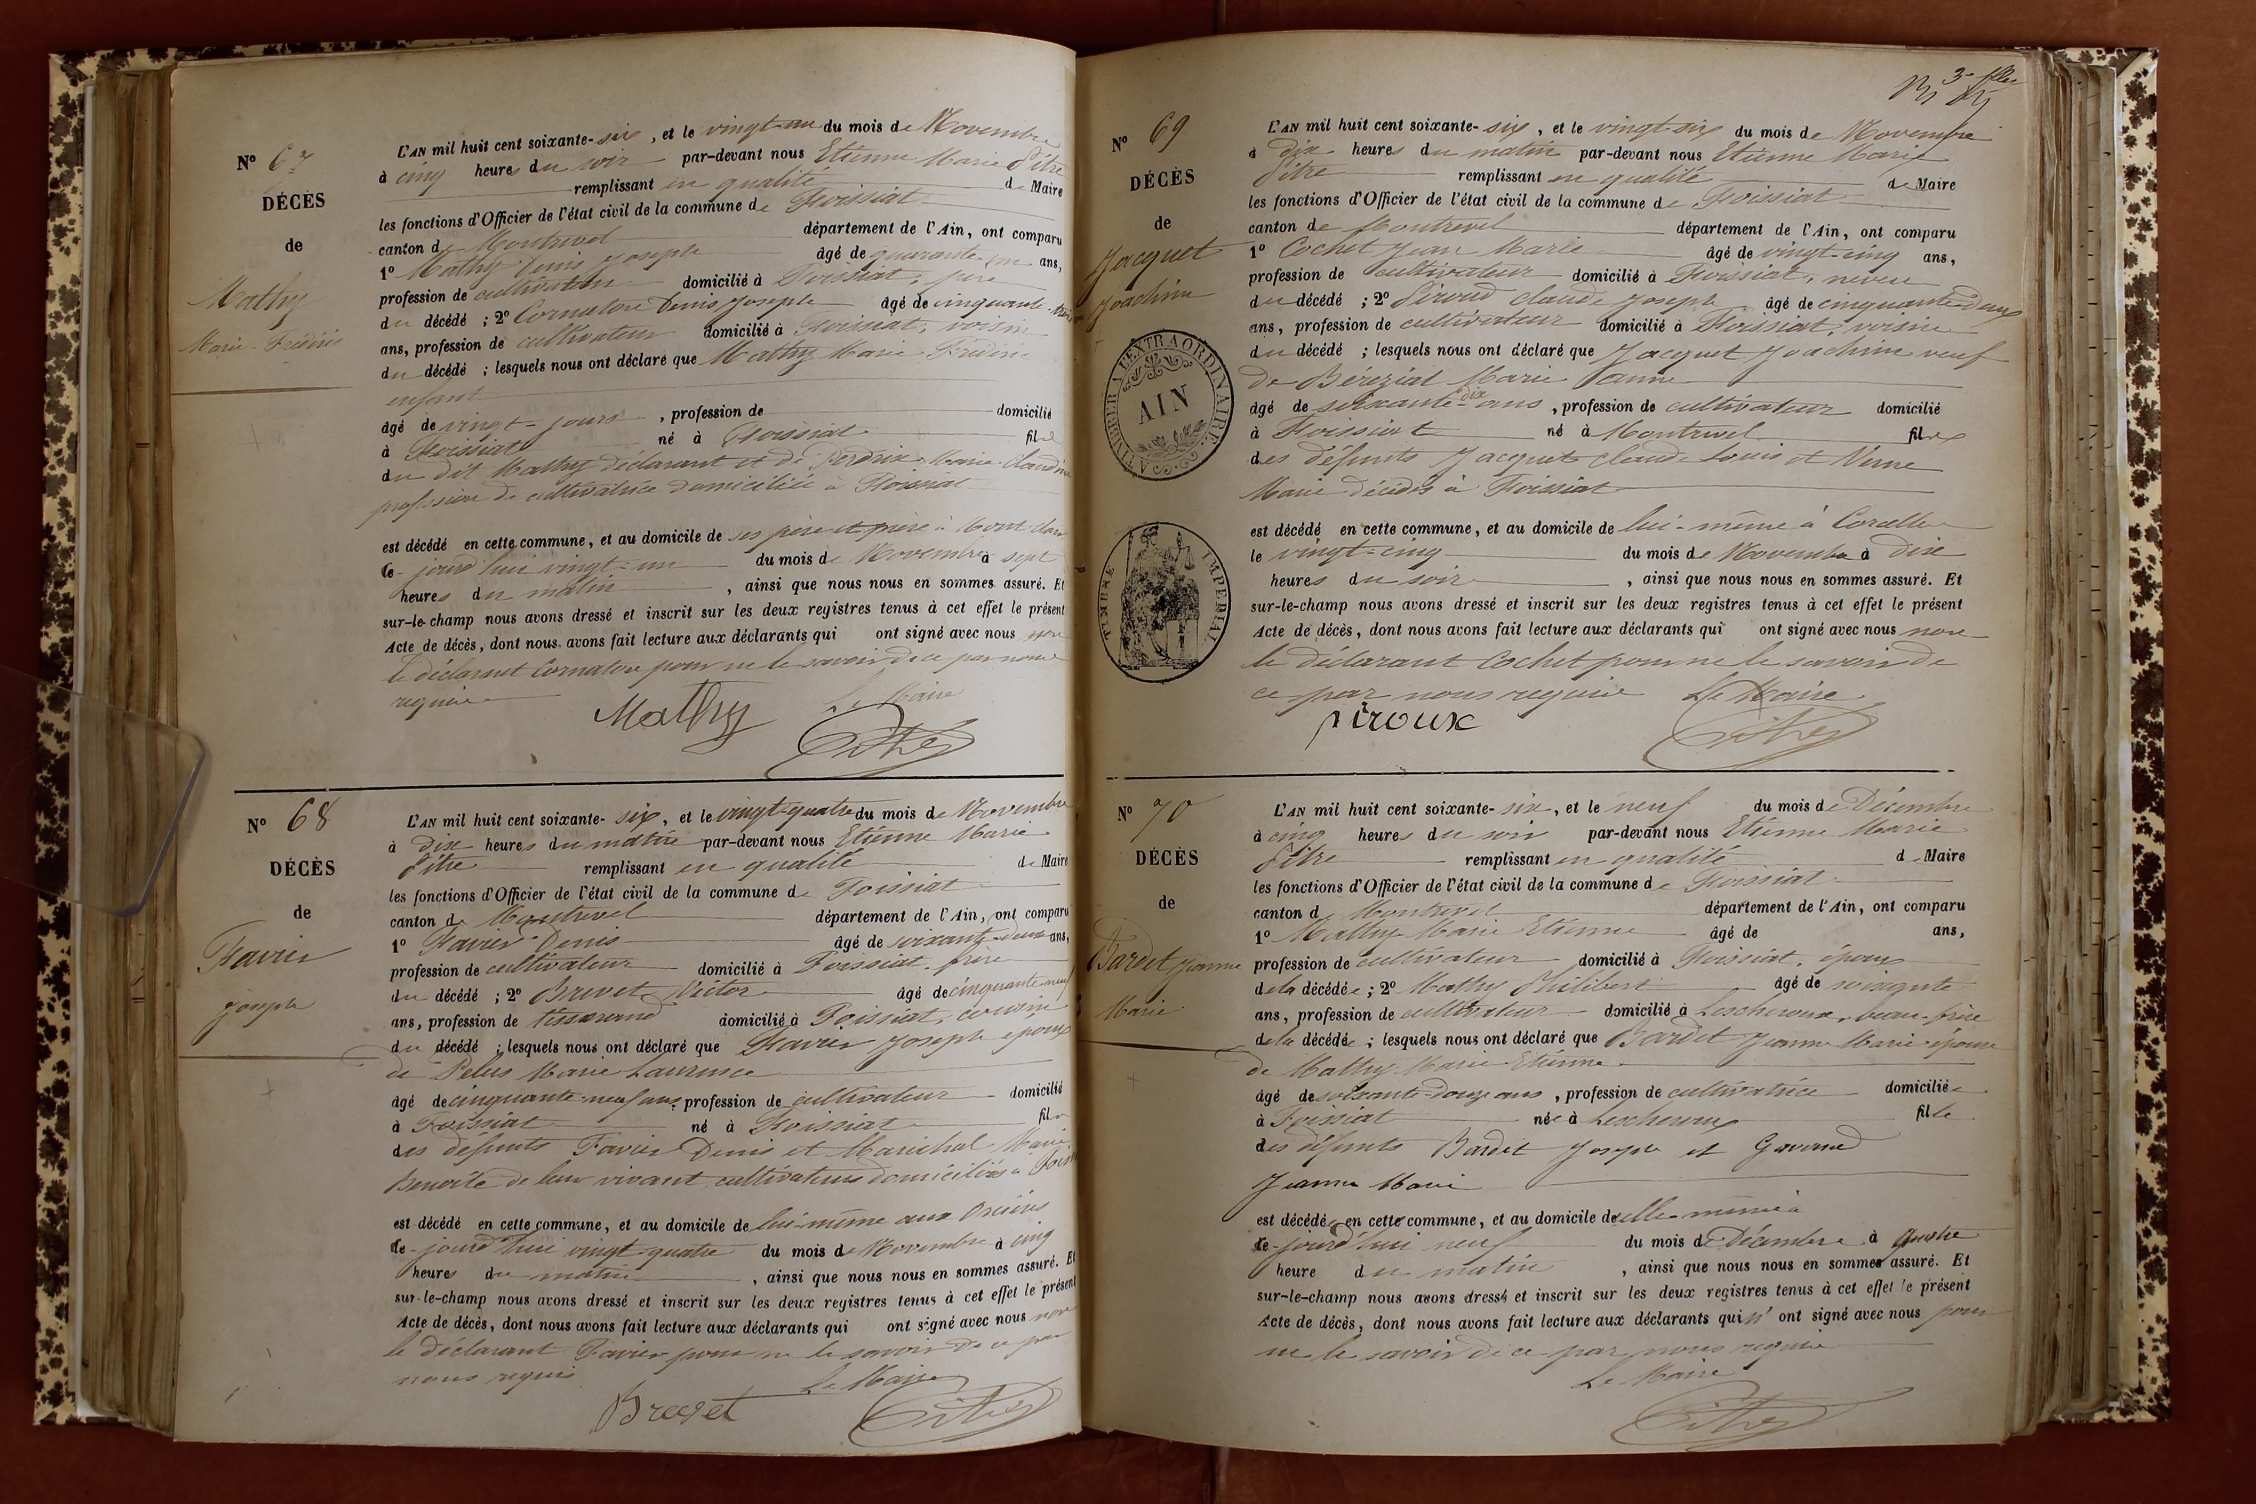 Nº 67
DÉCÈS
de
Mathy
Marie Frédéric
L'AN mil huit cent soixante-six, et le vingt-un du mois de Novembre
à cinq heures du soir par-devant nous Etienne Marie Pitre
remplissant en qualité de Maire
les fonctions d'Officier de l'état civil de la commune de Foissiat
canton de Montrevel département de l'Ain, ont comparu
1º Mathy Denis Joseph âgé de quarante-un ans,
profession de cultivateur domicilié à Foissiat, père
du décédé ; 2º Cornaton Denis Joseph âgé de cinquante-trois
ans, profession de cultivateur domicilié à Foissiat, voisin
du décédé ; lesquels nous ont déclaré que Mathy Marie Frédéric
enfant
âgé de vingt-jours, profession de domicilié
à Foissiat né à Foissiat fils
du dit Mathy déclarant et de Perdrix Marie Claudine
profession de cultivatrice domiciliée à Foissiat
est décédé en cette commune, et au domicile de ses père et mère à
ce jourd'hui vingt-un du mois de Novembre à sept
heures du matin, ainsi que nous nous en sommes assuré. Et
sur-le-champ nous avons dressé et inscrit sur les deux registres tenus à cet effet le présent
Acte de décès, dont nous avons fait lecture aux déclarants qui ont signé avec nous non
le déclarant Cornaton pour ne le savoir de ce par nous
requis
Le Maire
Mathy
Pitre
Nº 68
DÉCÈS
de
Favier
Joseph
L'AN mil huit cent soixante-six, et le vingt-quatre du mois de Novembre
à dix heures du matin par-devant nous Etienne Marie
Pitre remplissant en qualité de Maire
les fonctions d'Officier de l'état civil de la commune de Foissiat
canton de Montrevel département de l'Ain, ont comparu
1º Favier Denis âgé de soixante-deux ans,
profession de cultivateur domicilié à Foissiat, frère
du décédé ; 2º Brevet Victor âgé de cinquante-neuf
ans, profession de tisserand domicilié à Foissiat, cousin
du décédé ; lesquels nous ont déclaré que Favier Joseph époux
de Pelus Marie Laurence
âgé de cinquante-neuf ans, profession de cultivateur domicilié
à Foissiat né à Foissiat fils
des défunts Favier Denis et Maréchal Marie
Benoîte de leur vivant cultivateurs domiciliés à
est décédé en cette commune, et au domicile de lui-même aux
ce jourd'hui vingt-quatre du mois de Novembre à cinq
heures du matin, ainsi que nous nous en sommes assuré. Et
sur-le-champ nous avons dressé et inscrit sur les deux registres tenus à cet effet le présent
Acte de décès, dont nous avons fait lecture aux déclarants qui ont signé avec nous non
le déclarant Favier pour ne le savoir de ce par
nous requis
Le Maire
Brevet
Pitre
Nº 69
DÉCÈS
de
Jacquet
Joachim
A TIMBRER A L'EXTRAORDINAIRE
AIN
TIMBRE IMPERIAL
L'AN mil huit cent soixante-six, et le vingt-six du mois de Novembre
à dix heures du matin par-devant nous Etienne Marie
Pitre remplissant en qualité de Maire
les fonctions d'Officier de l'état civil de la commune de Foissiat
canton de Montrevel département de l'Ain, ont comparu
1º Cochet Jean Marie âgé de vingt-cinq ans,
profession de cultivateur domicilié à Foissiat, neveu
du décédé ; 2º Piroud Claude Joseph âgé de cinquante-deux
ans, profession de cultivateur domicilié à Foissiat, voisin
du décédé ; lesquels nous ont déclaré que Jacquet Joachim veuf
de Béréziat Marie Janne
âgé de soixante-dix ans, profession de cultivateur domicilié
à Foissiat né à Montrevel fils
des défunts Jacquet Claude Louis et Verne
Marie décédés à Foissiat
est décédé en cette commune, et au domicile de lui-même à Corcelle
le vingt-cinq du mois de Novembre à dix
heures du soir, ainsi que nous nous en sommes assuré. Et
sur-le-champ nous avons dressé et inscrit sur les deux registres tenus à cet effet le présent
Acte de décès, dont nous avons fait lecture aux déclarants qui ont signé avec nous non
le déclarant Cochet pour ne le savoir de
ce par nous requis Le Maire
piroux
Pitre
Nº 70
DÉCÈS
de
Bardet Jeanne
Marie
L'AN mil huit cent soixante-six, et le neuf du mois de Décembre
à cinq heures du soir par-devant nous Etienne Marie
Pitre remplissant en qualité de Maire
les fonctions d'Officier de l'état civil de la commune de Foissiat
canton d Montrevel département de l'Ain, ont comparu
1º Mathy Marie Etienne âgé de ans,
profession de cultivateur domicilié à Foissiat, époux
de la décédée ; 2º Mathy Philibert âgé de soixante
ans, profession de cultivateur domicilié à Lescheroux, beau-frère
de la décédée ; lesquels nous ont déclaré que Bardet Jeanne Marie épouse
de Mathy Marie Etienne
âgé de soixante-douze ans, profession de cultivatrice domiciliée
à Foissiat née à Lescheroux fille
des défunts Bardet Joseph et Gavand
Jeanne Marie
est décédée en cette commune, et au domicile d'elle-même à
ce jourd'hui neuf du mois de Décembre à quatre
heure du matin, ainsi que nous nous en sommes assuré. Et
sur-le-champ nous avons dressé et inscrit sur les deux registres tenus à cet effet le présent
Acte de décès, dont nous avons fait lecture aux déclarants qui n'ont signé avec nous pour
ne le savoir de ce par nous requis
Le Maire
Pitre